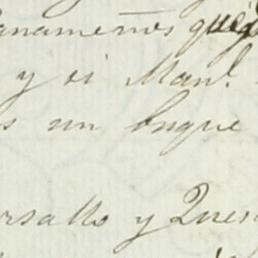 anameños que
y si Man!
s un buque
rsalto y Ques